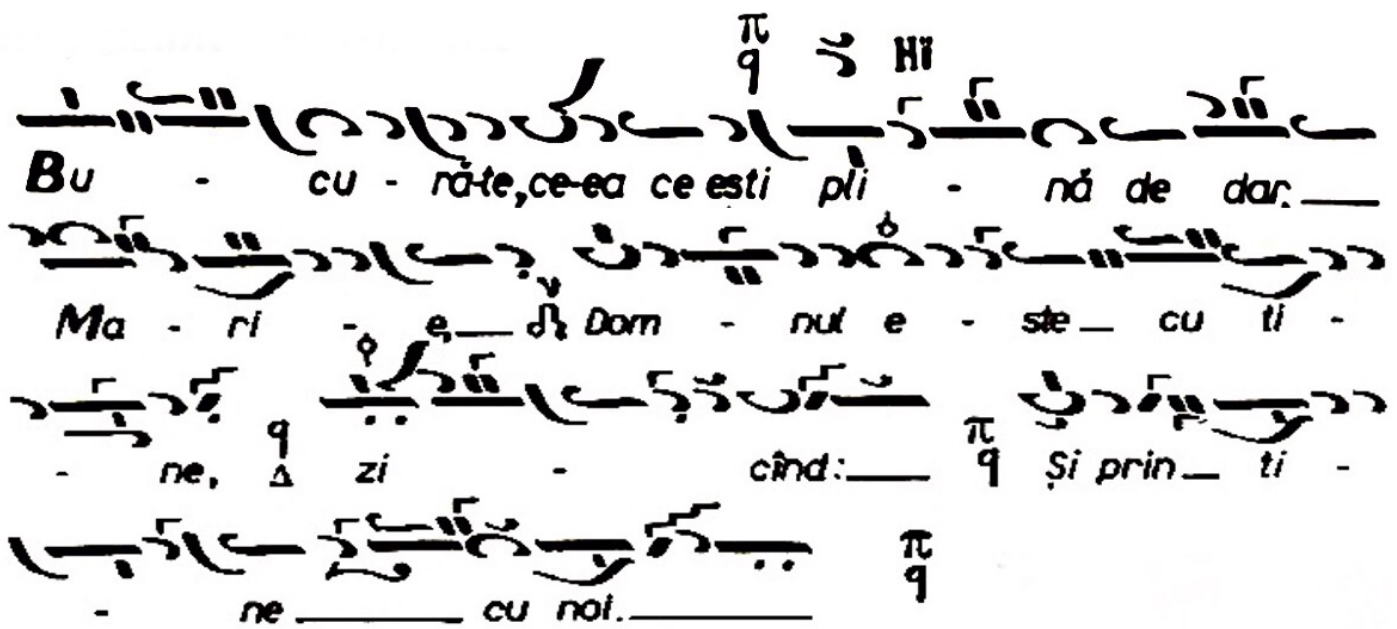 π q Hï
Bu - cu - ră-te, ce-ea ce esti pli - nă de dar.
Ma - ri - e, Dom - nul e - ste cu ti -
- ne, q Δ zi - cînd: π q Și prin ti -
- ne cu noi. π q